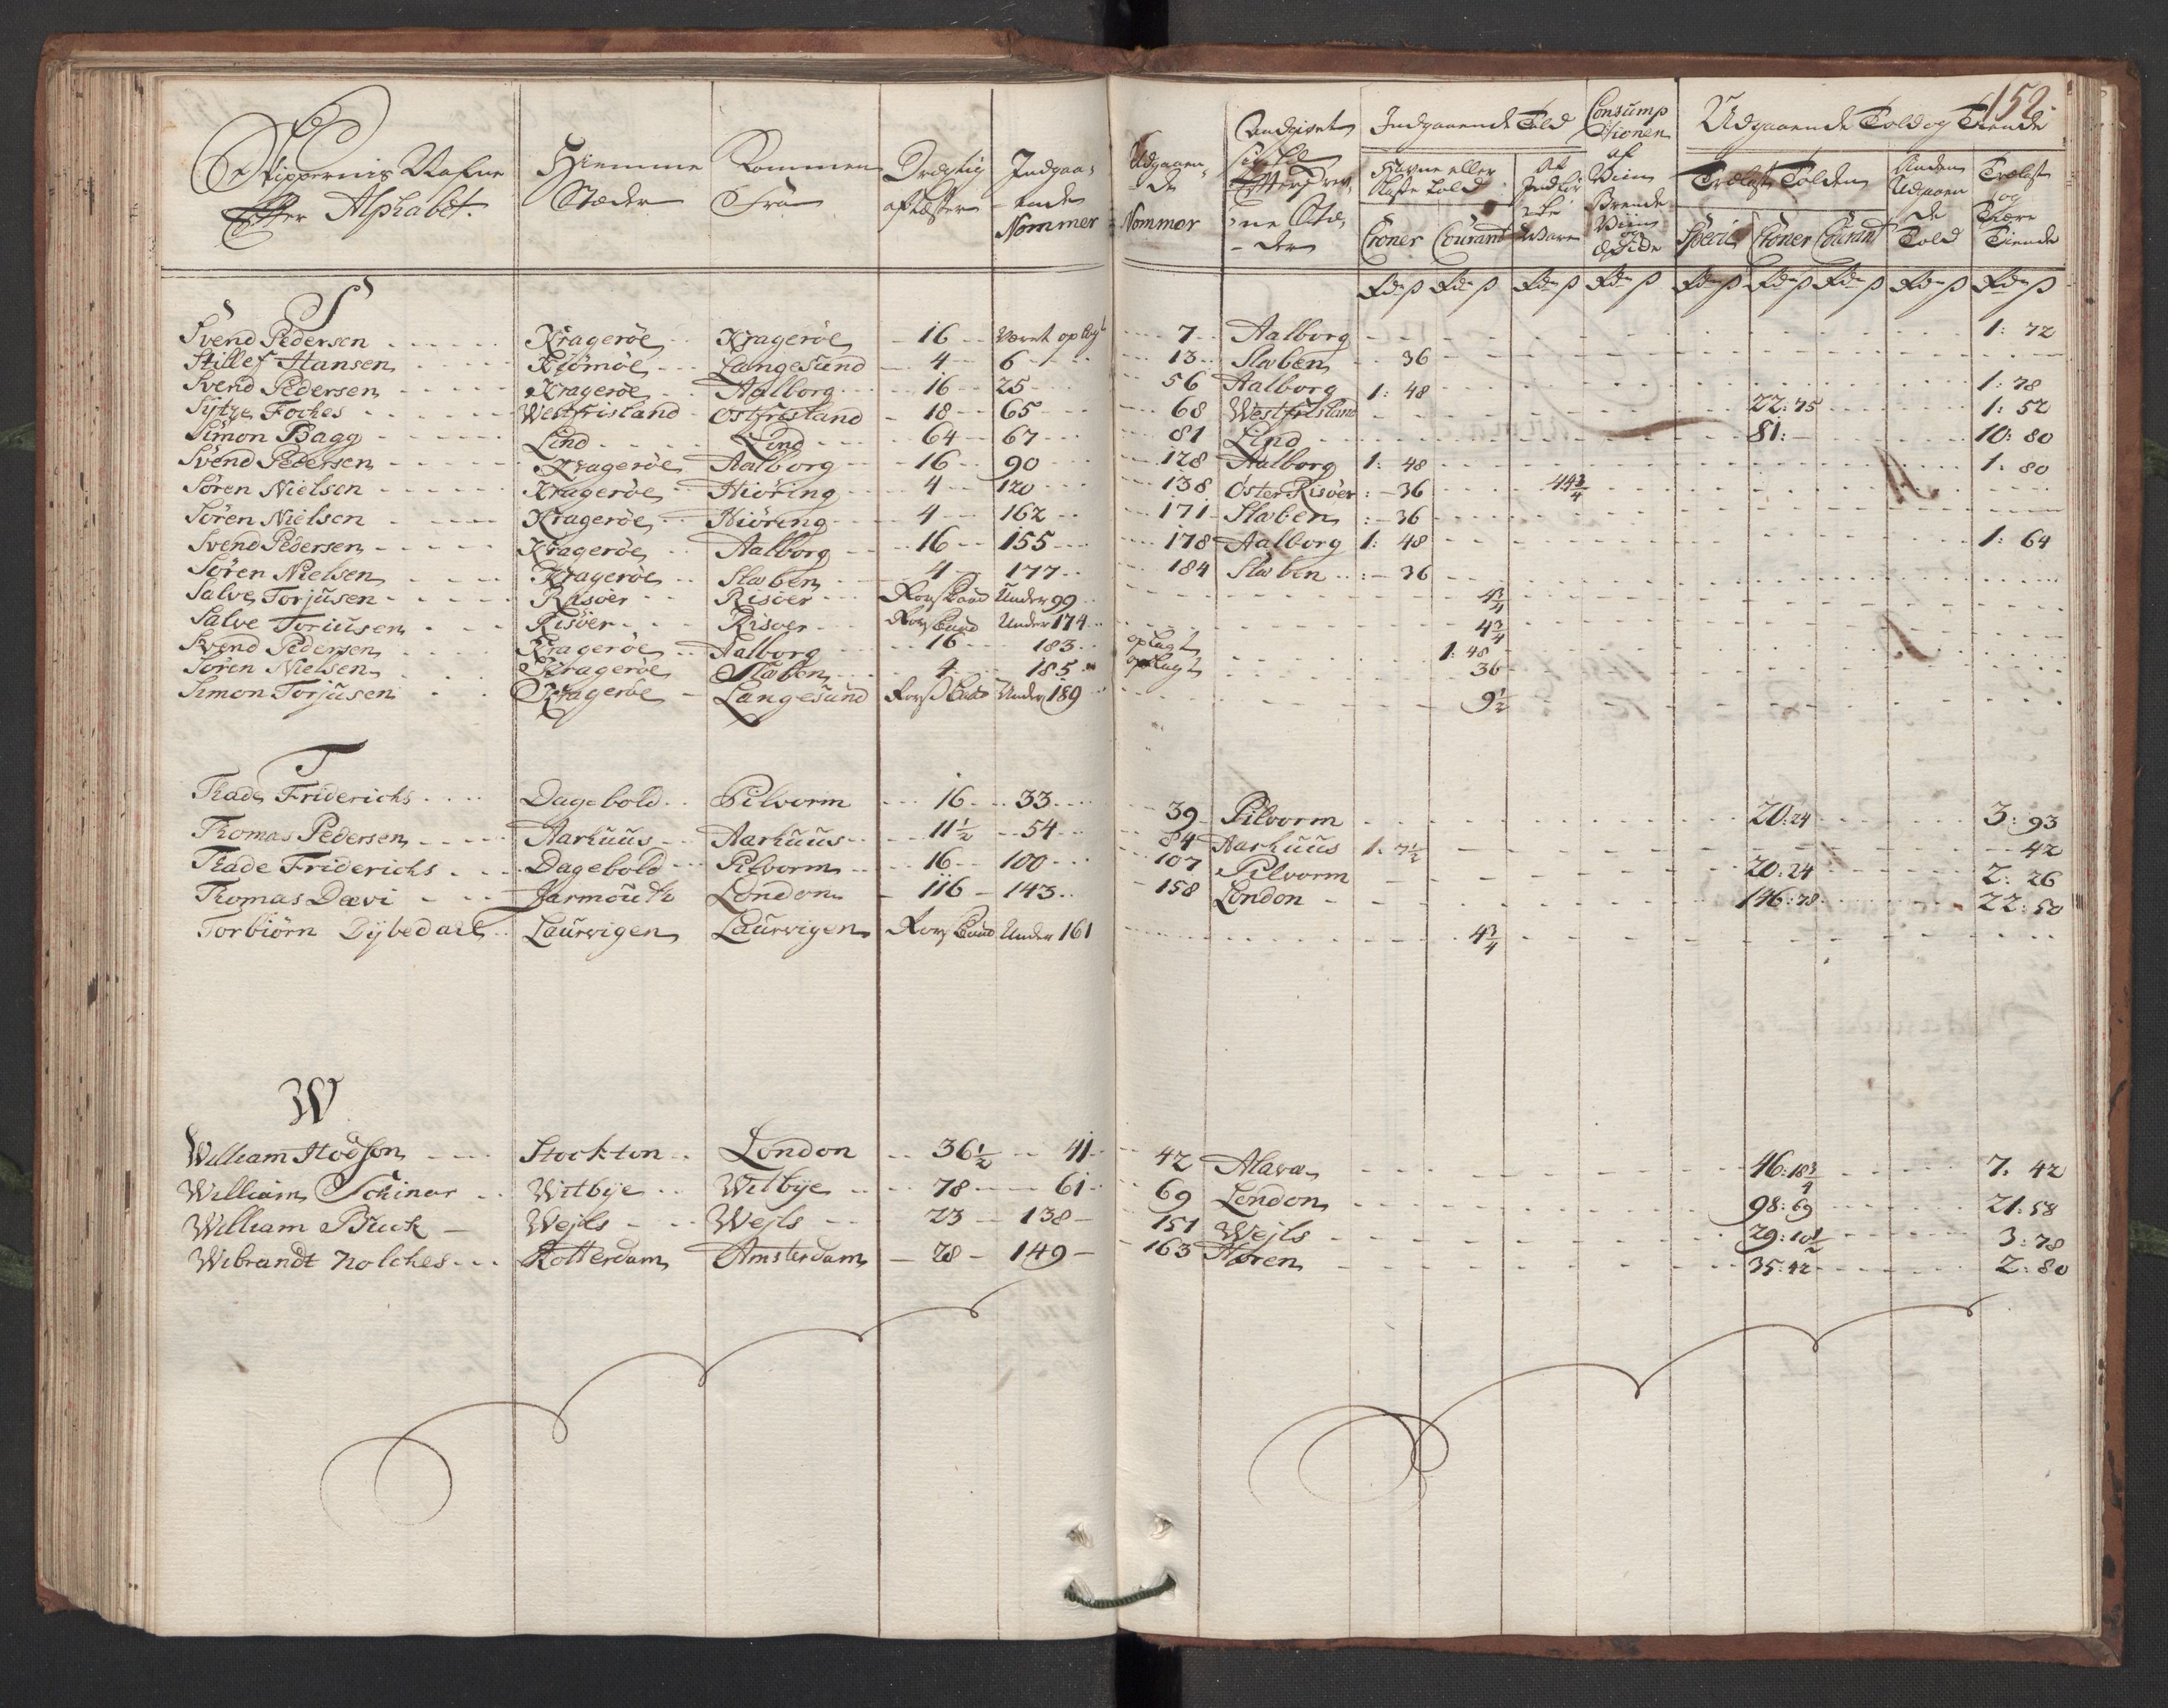 152.
Skippernis Nafne
Efter Alphabet.
Hiemme
Stæder
Kommen
Fra
Drægtig
af Læster
Indgaa-
ende
Nommer
Udgaaen-
de
Nommer
Indgaaende Told
Croner Courant
Consump
tionen
af
Viin
Brende
Viin
og
Udgaaende Told og Tiende
Trælast Tolden
Specie Croner Courant
Anden
Udgaaen
de
Told
Trælast
og
Tiære
Tiende
S
Svend Pedersen Kragerøe Kragerøe 16 Været oplagt 7 Aalborg 1: 72
Stillef Hansen Kiømøe Langesund 4 6 13 Slæben 36
Svend Pedersen Kragerøe Aalborg 16 25 56 Aalborg 1: 48 1: 78
Sÿtze Fockes Westfrisland Ostfrisland 18 65 68 Westfrisland 22: 75 1: 52
Simon Bagg Lind Lind 64 67 81 Lind 81: - 10: 80
Svend Pedersen Kragerøe Aalborg 16 90 128 Aalborg 1: 48 1: 80
Søren Nielsen Kragerøe Hiøring 4 120 138 Øster Risøer : - 36 44 3/4
Søren Nielsen Kragerøe Hiøring 4 162 171 Slæben : - 36
Svend Pedersen Kragerøe Aalborg 16 155 178 Aalborg 1: 48 1: 64
Søren Nielsen Kragerøe Slæben 4 177 184 Slæben : - 36
Salve Torjusen Risøer Risøer Rors Baad Under 99 4 3/4
Salve Toriusen Risøer Risøer Rors Baad Under 174 4 3/4
Svend Pedersen Kragerøe Aalborg 16 183 oplagt 1: 48
Søren Nielsen Kragerøe Slæben 4 185 oplagt 36
Simon Torjusen Kragerøe Langesund Rors Baad Under 189 9 1/2
T
Thade Friderichs Dagebold Pilworm 16 33 39 Pilworm 20: 24 3: 93
Thomas Pedersen Aarhuus Aarhuus 11 1/2 54 84 Aarhuus 1: 7 1/2 42
Thade Friderichs Dagebold Pilworm 16 100 107 Pilworm 20: 24 2: 26
Thomas Dævi Jarmouth London 116 143 158 London 146: 78 22: 50
Torbiørn Dÿbedael Laurvigen Laurvigen Rors Baad Under 161 4 3/4
W
William Hodson Stockton London 36 1/2 41 42 Alava 46: 18 3/4 7: 42
William Schinar Witbÿe Witbÿe 78 61 69 London 98: 69 21: 58
William Buck Wejls Wejls 23 138 151 Wejls 29: 10 1/2 3: 78
Wibrandt Nolckes Rotterdam Amsterdam 28 149 163 Horen 35: 42 2: 80